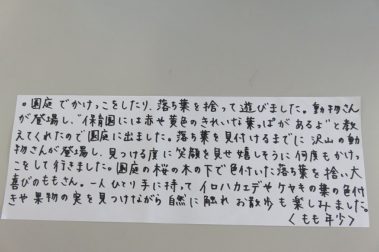 。園庭でかけっこをしたり、落ち葉を捨って遊びました。動物さん
が登場し、"保育園には赤や黄色のきれいな葉っぱがあるよ"と教
えてくれたので園庭に出ました。落ち葉を見付けるまでに沢山の動
物さんが登場し、見つける度に笑顔を見せ嬉しそうに何度もかけっ
こをして行きました。園庭の桜の木の下で色付いた落ち葉を拾い大
喜びのももさん。一人ひとり手に持ってイロハカエデやケヤキの葉の色付
きや果物の実を見つけながら自然に触れお散歩も楽しみました。
<もも年少>